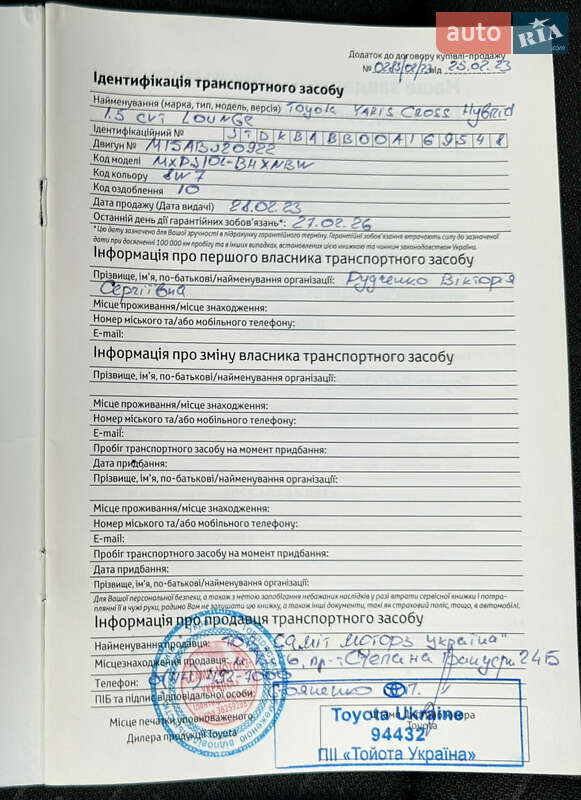 auto RIA.com
Додаток до договору купівлі-продажу
№ 0285/02/23 від 25.02.23
Ідентифікація транспортного засобу
Найменування (марка, тип, модель, версія) Toyota YARIS CROSS Hybrid
1.5 CVT LOUNGE
Ідентифікаційний № JTDKBABB00A169548
Двигун № M15ABJ20922
Код моделі MXPJ10L-BHXNBW
Код кольору 8W7
Код оздоблення 10
Дата продажу (Дата видачі) 28.02.23
Останній день дії гарантійних зобов'язань*: 27.02.26
*Цю дату зазначено для Вашої зручності в підрахунку гарантійного терміну. Гарантійні зобов'язання втрачають силу до зазначеної
дати при досягненні 100 000 км пробігу та в інших випадках, встановлених цією книжкою та чинним законодавством України.
Інформація про першого власника транспортного засобу
Прізвище, ім'я, по-батькові/найменування організації: Рудченко Вікторія
Сергіївна
Місце проживання/місце знаходження:
Номер міського та/або мобільного телефону:
E-mail:
Інформація про зміну власника транспортного засобу
Прізвище, ім'я, по-батькові/найменування організації:
Місце проживання/місце знаходження:
Номер міського та/або мобільного телефону:
E-mail:
Пробіг транспортного засобу на момент придбання:
Дата придбання:
Прізвище, ім'я, по-батькові/найменування організації:
Місце проживання/місце знаходження:
Номер міського та/або мобільного телефону:
E-mail:
Пробіг транспортного засобу на момент придбання:
Дата придбання:
Прізвище, ім'я, по-батькові/найменування організації:
Для Вашої персональної безпеки, а також з метою запобігання небажаних наслідків у разі втрати сервісної книжки і потра-
плянні її в чужі руки, радимо Вам не залишати цю книжку, а також інші документи, такі як страховий поліс, тощо, в автомобілі.
Інформація про продавця транспортного засобу
Найменування продавця: "Саміт Моторз Україна"
Місцезнаходження продавця: пр-т Степана Бандери 24Б
Телефон:
ПІБ та підпис відповідальної особи:
Місце печатки уповноваженого
Дилера продукції Toyota
Toyota Ukraine
94432
ПІІ «Тойота Україна»